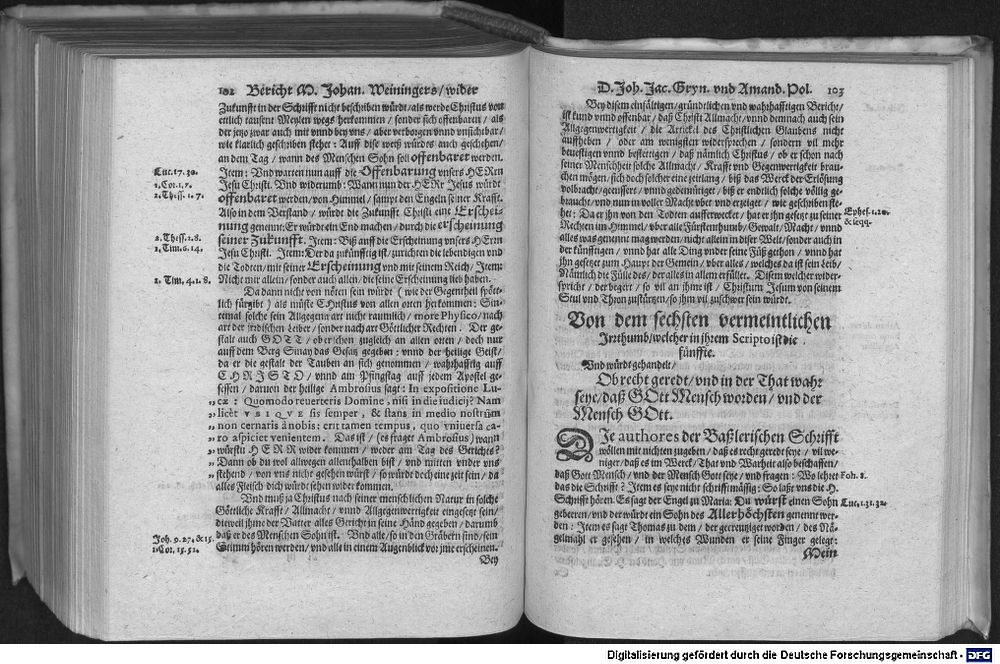 102 Bericht M. Johan. Weiningers / wider
Zukunfft in der Schrifft nicht beschriben würdt / als werde Christus von
etlich tausent Meylen wegs herkommen / sonder sich offenbaren / als
der jezo zwar auch mit vnnd bey vns / aber verborgen vnnd vnsichtbar /
wie klärlich geschriben stehet: Auff dise weiß würdts auch geschehen /
an dem Tag / wann des Menschen Sohn soll offenbaret werden.
Luc. 17. 30.
Item: Vnd warten nun auff die Offenbarung vnsers HERrn
1. Cor. 1. 7.
Jesu Christi. Vnd widerumb: Wann nun der HERr Jesus würdt
2. Thess. 1. 7.
offenbaret werden / von Himmel / sampt den Engeln seiner Krafft.
Also in dem Verstand / würdt die Zukunfft Christi eine Erschei-
nung genennt: Er würdt ein End machen / durch die erscheinung
2. Thess. 2. 8.
seiner Zukunfft. Item: Biß auff die Erscheinung vnsers HErrn
1. Tim. 6. 14.
Jesu Christi. Item: Der da zukünfftig ist / zurichten die lebendigen vnd
die Todten / mit seiner Erscheinung vnd mit seinem Reich / Item:
2. Tim. 4. 1. 8.
Nicht mir allein / sonder auch allen / die seine Erscheinung lieb haben.
Da dann nicht von nöten sein würdt (wie der Gegentheil spött-
lich fürgibt) als müste CHristus von allen orten her kommen: Sin-
temal solche sein Allgegenwart nicht raumlich / more Physico / nach
art der irdischen Leiber / sonder nach art Göttlicher Rechten. Der ge-
stalt auch GOTT / ob er schon zugleich an allen orten / doch nur
auff dem Berg Sinay das Gesatz gegeben: vnnd der heilige Geist /
da er die gestalt der Tauben an sich genommen / wahrhafftig auff
CHRISTO / vnnd am Pfingstag auff jedem Apostel ge-
sessen / daruon der heilige Ambrosius sagt: In expositione Lu-
cæ: Quomodo reuerteris Domine, nisi in die iudicij? Nam
licèt VBIQVE sis semper, & stans in medio nostrûm
non cernaris à nobis: erit tamen tempus, quo vniuersa ca-
ro aspiciet venientem. Das ist / (es fraget Ambrosius) wann
würstu HERR wider kommen / weder am Tag des Gerichts?
Dann ob du wol allwegen allenthalben bist / vnd mitten vnder vns
stehend / von vns nicht gesehen würst / so würdt doch eine zeit sein / da
alles Fleisch dich würdt sehen wider kommen.
Vnd muß ja Christus nach seiner menschlichen Natur in solche
Göttliche Krafft / Allmacht / vnnd Allgegenwertigkeit eingesetzt sein /
dieweil jhme der Vatter alles Gericht in seine Händ gegeben / darumb
Joh. 5. 27. & 15.
daß er des Menschen Sohn ist. Vnd alle / so in den Gräbern sind / sein
1. Cor. 15. 51.
Stimm hören werden / vnd alle in einem Augenblick vor jme erscheinen.
Bey
D. Joh. Jac. Gryn. vnd Amand. Pol. 103
Bey disem einfältigen / gründtlichen vnd wahrhafftigen Bericht /
ist kund vnnd offenbar / daß Christi Allmacht / vnnd demnach auch sein
Allgegenwertigkeit / die Artickel des Christlichen Glaubens nicht
auffheben / oder am wenigsten widersprechen / sondern vil mehr
beuestigen vnnd bestettigen / daß nämlich Christus / ob er schon nach
seiner Menschheit solche Allmacht / Krafft vnd Gegenwertigkeit brau-
chen mögen / sich doch solcher eine zeitlang / biß das Werck der Erlösung
volbracht / geeussert / vnnd gedemütiget / biß er endtlich solche völlig ge-
braucht / vnd nun in voller Macht übet vnd erzeiget / wie geschriben ste-
het: Da er jhn von den Todten aufferwecket / hat er jhn gesetzt zu seiner
Ephes. 1. 20.
& seqq.
Rechten im Himmel / vber alle Fürstenthumb / Gewalt / Macht / vnnd
alles was genennt mag werden / nicht allein in diser Welt / sonder auch in
der künfftigen / vnnd hat alle Ding vnder seine Füß gethon / vnnd hat
jhn gesetzt zum Haupt der Gemein / vber alles / welches da ist sein Leib /
Nämlich die Fülle des / der alles in allem erfüllet. Disem welcher wider-
spricht / der begert / so vil an jhme ist / Christum Jesum von seinem
Stul vnd Thron zustürtzen / so jhm vil zuschwer sein würdt.
Von dem sechsten vermeintlichen
Irrthumb / welcher in jhrem Scripto ist die
fünffte.
Vnd würdt gehandelt /
Ob recht geredt / vnd in der That wahr
seye / daß GOtt Mensch worden / vnd der
Mensch GOtt.
DIe authores der Baßlerischen Schrifft
wöllen mit nichten zugeben / daß es recht geredt seye / vil we-
niger / daß es im Werck / That vnd Warheit also beschaffen /
daß Gott Mensch / vnd der Mensch Gott seye / vnd fragen: Wo lehret
Foh. 2.
das die Schrifft? Item es seye nicht schrifftmässig: So laßt vns die H.
Schrifft hören. Es sagt der Engel zu Maria: Du würst einen Sohn
Luc. 1. 31. 32.
geberen / vnd der würdt ein Sohn des Allerhöchsten genennt wer-
den: Item es sagt Thomas zu dem / der gecreutziget worden / des Nä-
gelmahl er gesehen / in welches Wunden er seine Finger gelegt:
Mein
Digitalisierung gefördert durch die Deutsche Forschungsgemeinschaft - DFG